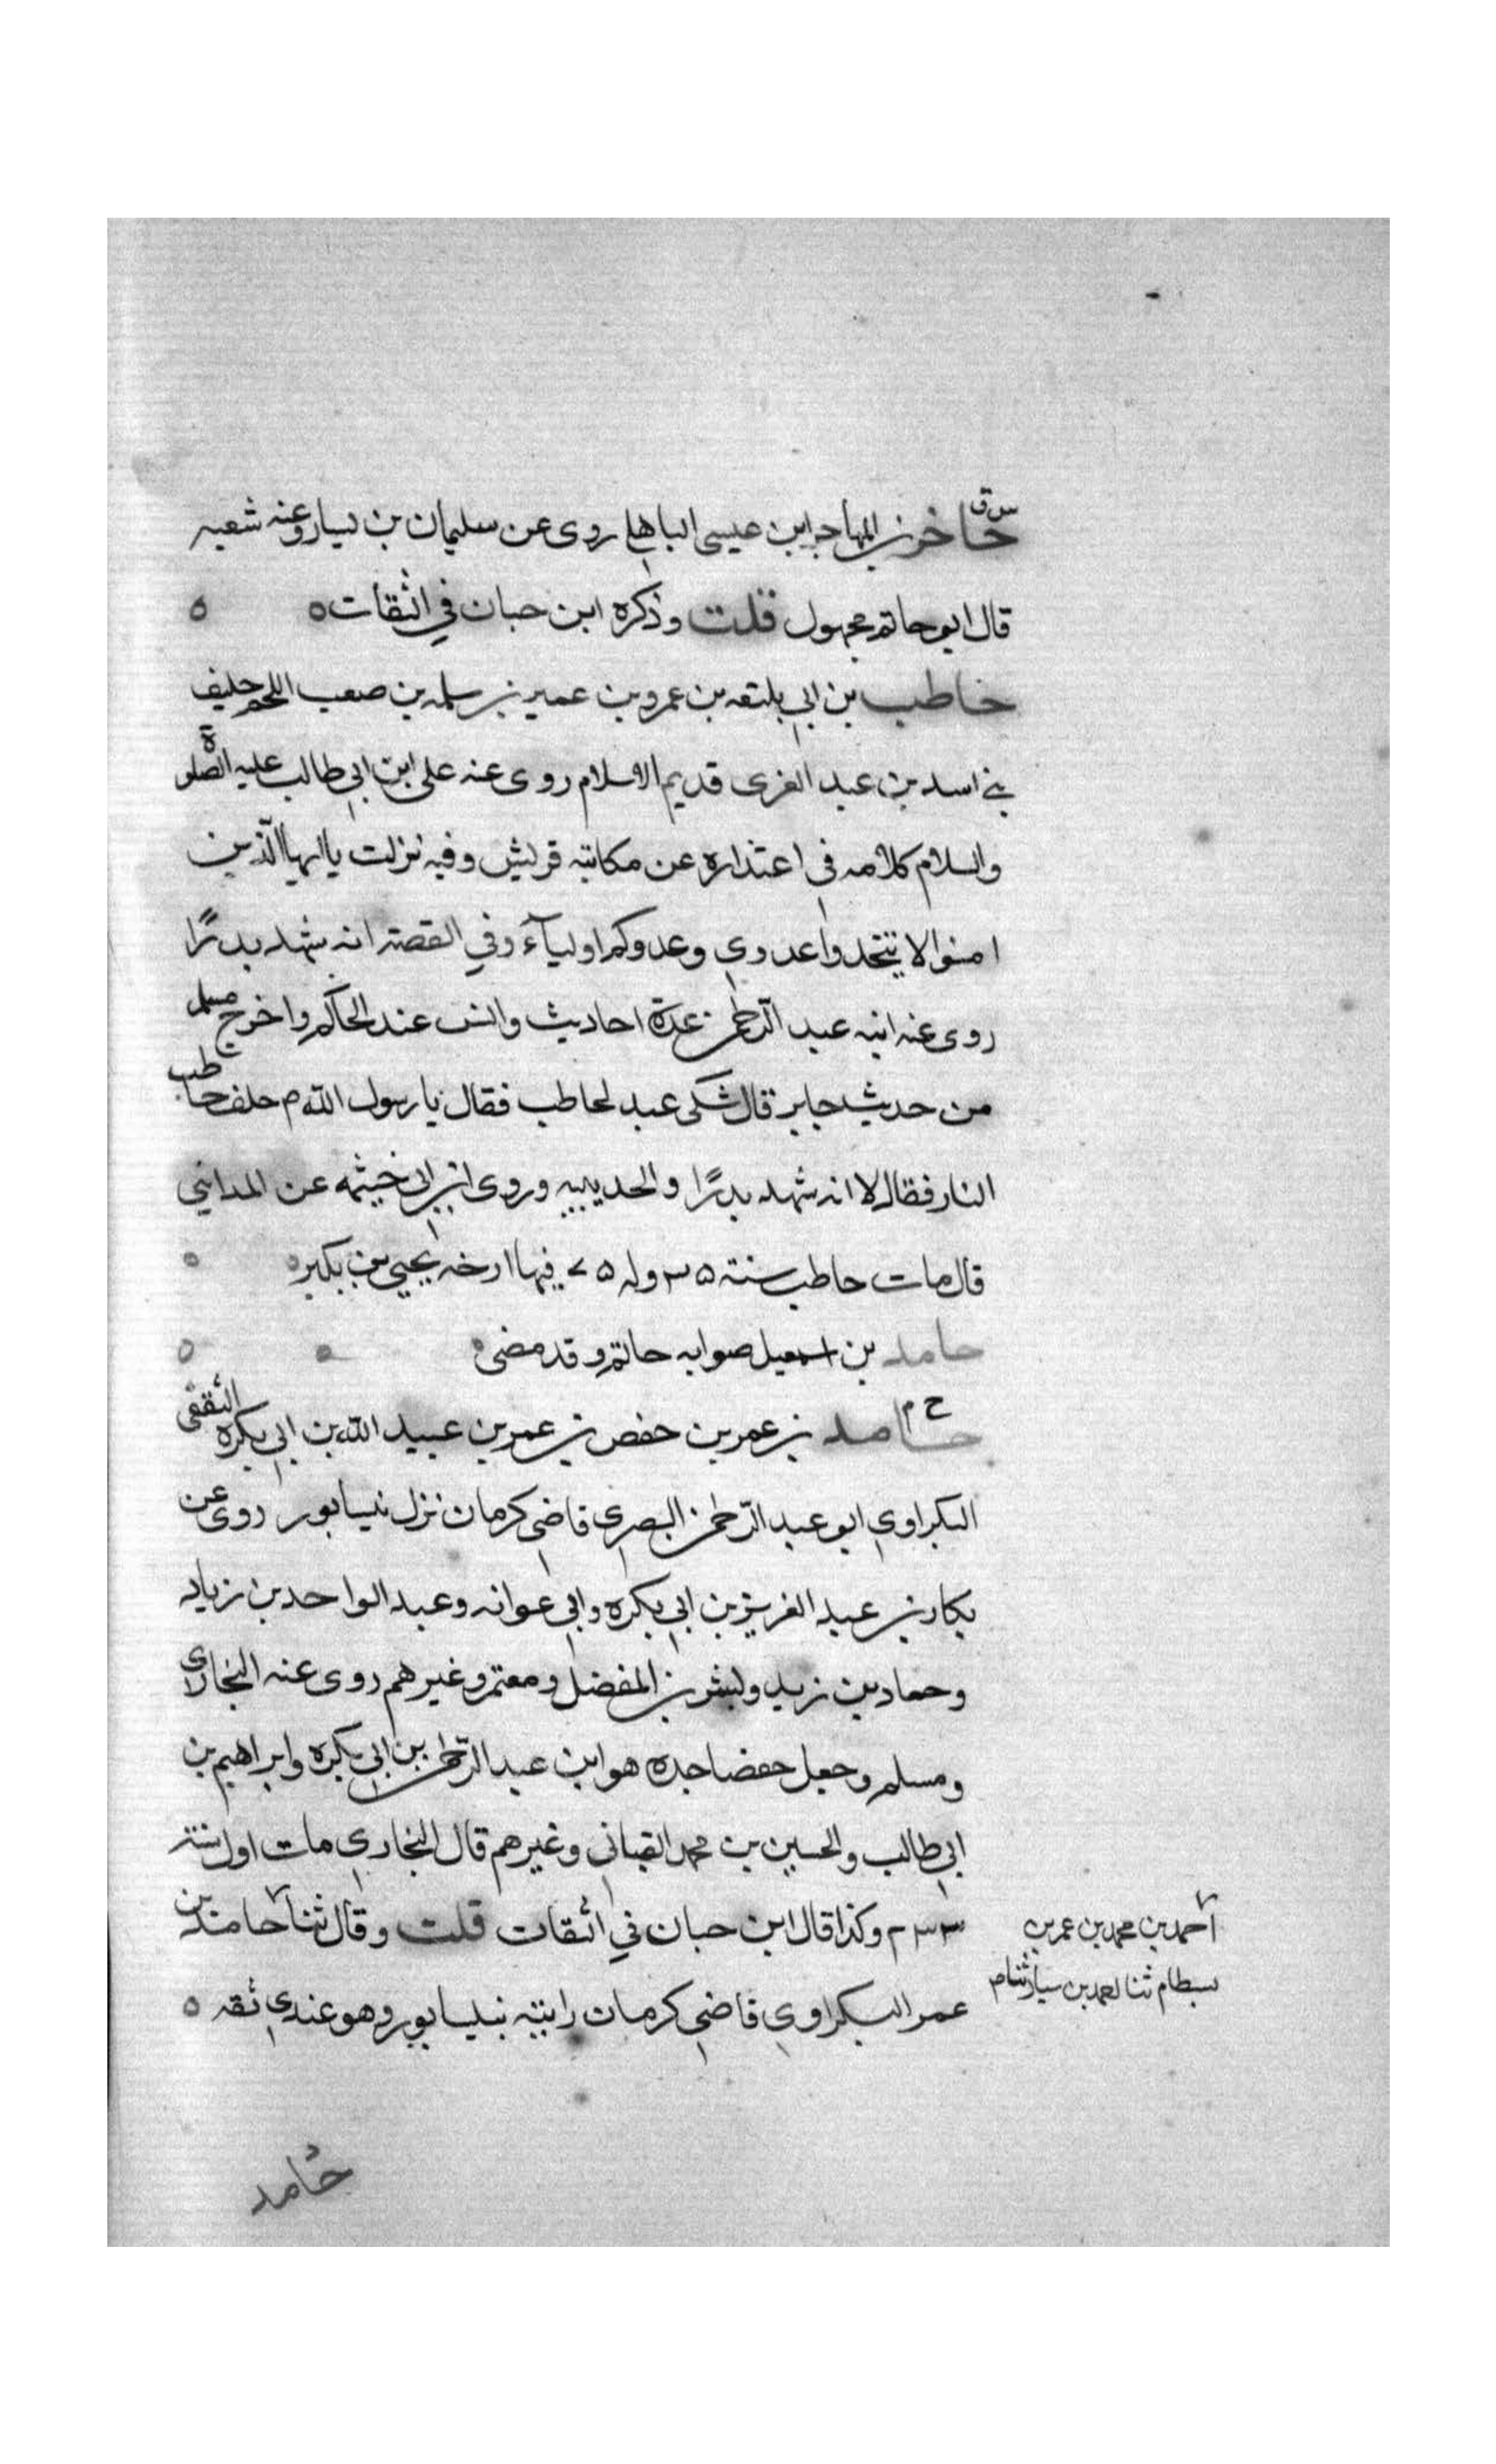 س ق
حاخر بن المهاجر ابن عيسى الباهلي روى عن سليمان بن يسار وعنه شعبه
قال ابو حاتم مجهول قلت وذكره ابن حبان في الثقات ه ه
حاطب بن ابي بلتعه بن عمرو بن عمير بن سلمه بن صعب اللخمي حليف
بني اسد بن عبد الغرى قديم الاسلام روى عنه على ابن ابي طالب عليه الصلوة
والسلام كلامه في اعتذاره عن مكاتبه قريش وفيه نزلت يا ايها الذين
امنوا لا تتخذوا عدوي وعدوكم اولياء وفي القصة انه شهد بدرًا
روى عنه ابنه عبد الرحمن عدة احاديث وانس عند الحاكم واخرج مسلم
من حديث جابر قال شكى عبد لحاطب فقال يا رسول الله م حاطب
النار فقال لا انه شهد بدرًا والحديبيه وروى ابن ابي خيثمه عن المدايني
قال مات حاطب سنة ۳۵ وله ۷۵ فيها ارخه يحيى بن بكير ه ه
حامد بن اسمعيل صوابه حاتم وقد مضى ه ه ه
خ م
حامد بن عمر بن حفص بن عمر بن عبيد الله بن ابي بكره الثقفى
البكراوي ابو عبد الرحمن البصري قاضي كرمان نزل نيسابور روى عن
بكار بن عبد الغريز بن ابي بكره وابي عوانه وعبد الواحد بن زياد
وحماد بن زيد وبشر بن المفضل ومعتمر وغيرهم روى عنه البخارى
ومسلم وجعل حفصا جده هو ابن عبد الرحمن بن ابي بكره وابراهيم بن
ابي طالب والحسين بن محمد القباني وغيرهم قال البخاري مات اول سنة
۲۳۳ وكذا قال ابن حبان في الثقات قلت وقال ثنا حامد بن
عمر البكراوي قاضي كرمان رايته بنيسابور وهو عندي ثقه ه
احمد بن محمد بن عمر بن
بسطام ثنا احمد بن سيار ثنا
حامد